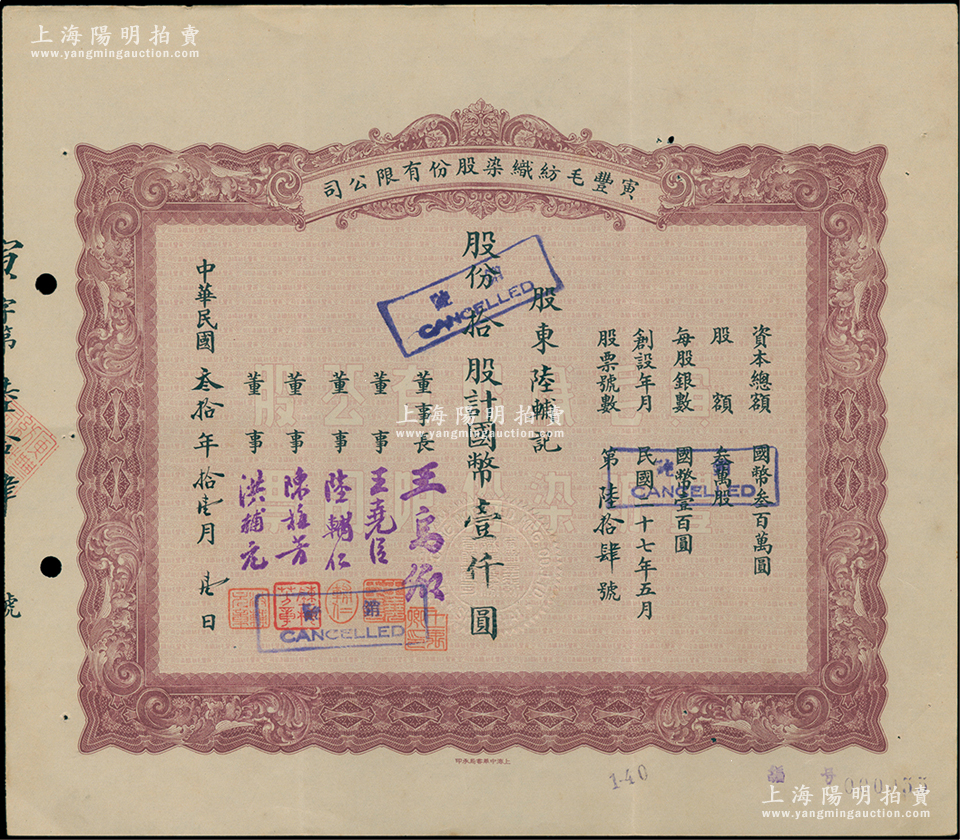 上海陽明拍賣
www.yangmingauction.com
寅豐毛紡織染股份有限公司
資本總額 國幣叁百萬圓
股額 叁萬股
每股銀數 國幣壹百圓
創設年月 民國二十七年五月
股票號數 第陸拾肆號
股東陸輔記
股份拾股計國幣壹仟圓
董事長
董事 王堯臣
董事 陸輔仁
董事
董事
中華民國叁拾年拾壹月 日
註銷
CANCELLED
註銷
CANCELLED
註銷
CANCELLED
寅字第 號
上海陽明拍賣
www.yangmingauction.com
上海中華書局承印
1-40
上海陽明拍賣
www.yangmingauction.com